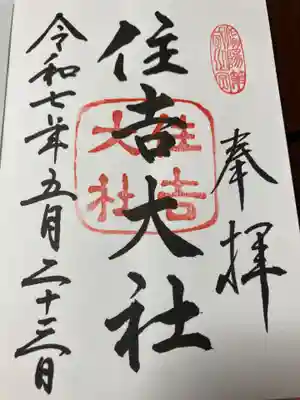 奉拝
住吉大社
住吉大社
令和七年五月二十三日